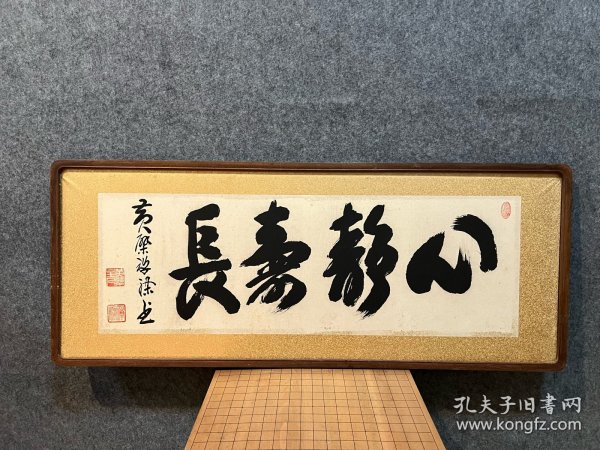 心静壽長
黄檗
孔夫子旧書网
www.kongfz.com